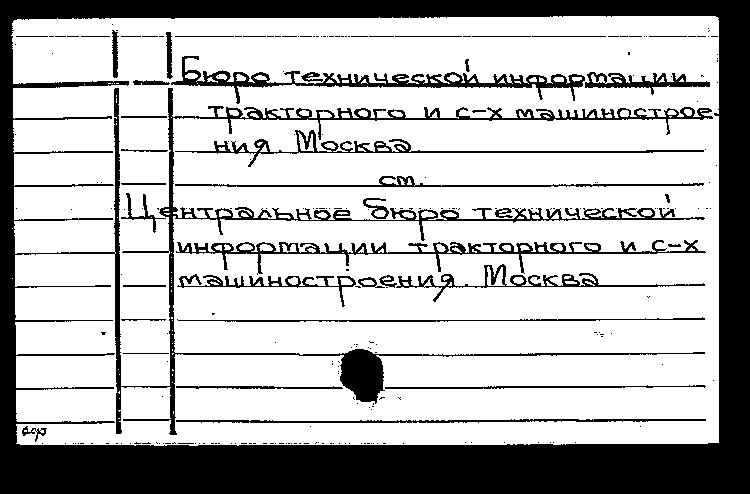 Бюро технической информации
тракторного и с-х машинострое-
ния. Москва
см.
Центральное бюро технической
информации тракторного и с-х
машиностроения. Москва